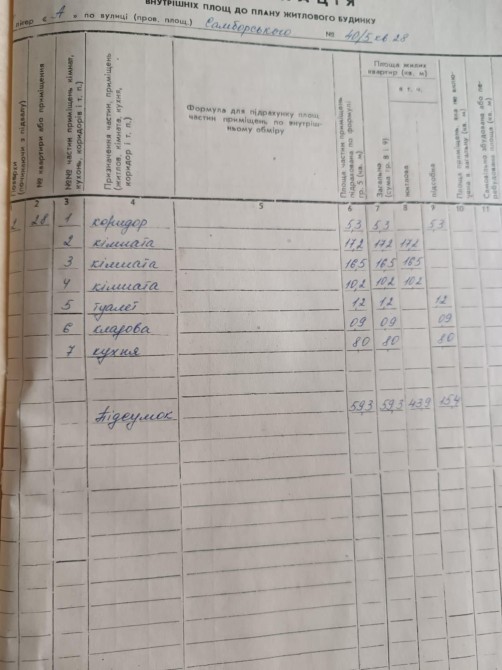 АЦІЯ
ВНУТРІШНІХ ПЛОЩ ДО ПЛАНУ ЖИТЛОВОГО БУДИНКУ
літер « А » по вулиці (пров. площ.) Самборського № 40/5 кв 28
№ квартири або приміщення
№№ частин приміщень кімнат, кухонь, коридорів і т. п.)
Призначення частин, приміщень (житлов. кімната, кухня, коридор і т. п.)
Формула для підрахунку площ частин приміщень по внутрішньому обміру
Площа частин приміщень підрахована по формулі гр. 5 (кв. м)
Площа жилих квартир (кв. м)
Загальна (сума гр. 8 і 9)
в т. ч.
жила
підсобна
2 3 4 5 6 7 8 9 10 11
28 1 коридор 5,3 5,3 5,3
2 кімната 17,2 17,2 17,2
3 кімната 16,5 16,5 16,5
4 кімната 10,2 10,2 10,2
5 туалет 1,2 1,2 1,2
6 кларова 0,9 0,9 0,9
7 кухня 8,0 8,0 8,0
Підсумок 59,3 59,3 43,9 15,4